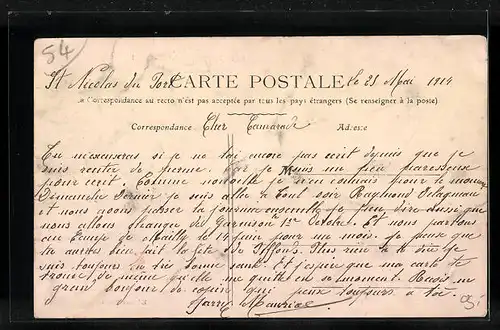 54
St Nicolas du Port CARTE POSTALE le 25 Mai 1914
La Correspondance au recto n'est pas acceptée par tous les pays étrangers (Se renseigner à la poste)
Correspondance Cher Camarade Adresse
Tu m'excuseras si je ne t'ai encore pas ecrit depuis que je
suis rentré de perme. Car je suis un peu paresseux
pour ecrir. Comme nouvelle je rien connais pour le moment
Dimanche dernier je suis allé a Toul voir Raymond
et nous avons passer la journée ensemble je peu dire aussi que
nous allons changer de Garnison 1er Octobre. Et nous partons
au Camp de Mailly le 14 juin pour un mois. Je pense que
tu auras bien fait la fête de Plus rien a te dire je
suis toujours en tré bonne santé. Et j'espère que ma carte te
trouve de meme qu'elle me quitte en se moment. Reçois un
gran bonjour de copain qui pense toujours a toi.
Maurice